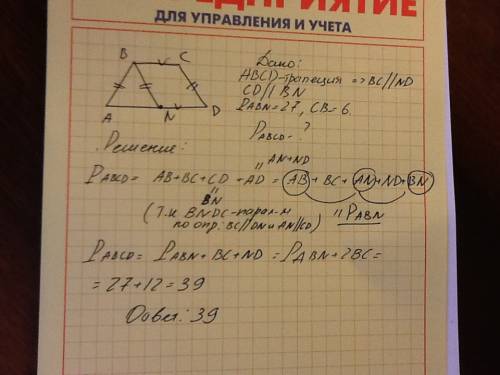 ПРИЯТИЕ
ДЛЯ УПРАВЛЕНИЯ И УЧЕТА
Дано:
ABCD-трапеция => BC//ND
CD // BN
P_ABN = 27, CB = 6.
P_ABCD - ?
B C
A N D
Решение:
P_ABCD = AB+BC+CD+AD = AB + BC + AN + ND + BN
" AN+ND
" BN
" P_ABN
(т.к BNDC-парал-м
по опр. BC//DN и AN//CD)
P_ABCD = P_ABN + BC + ND = P_ABN + 2BC =
= 27 + 12 = 39
Ответ: 39